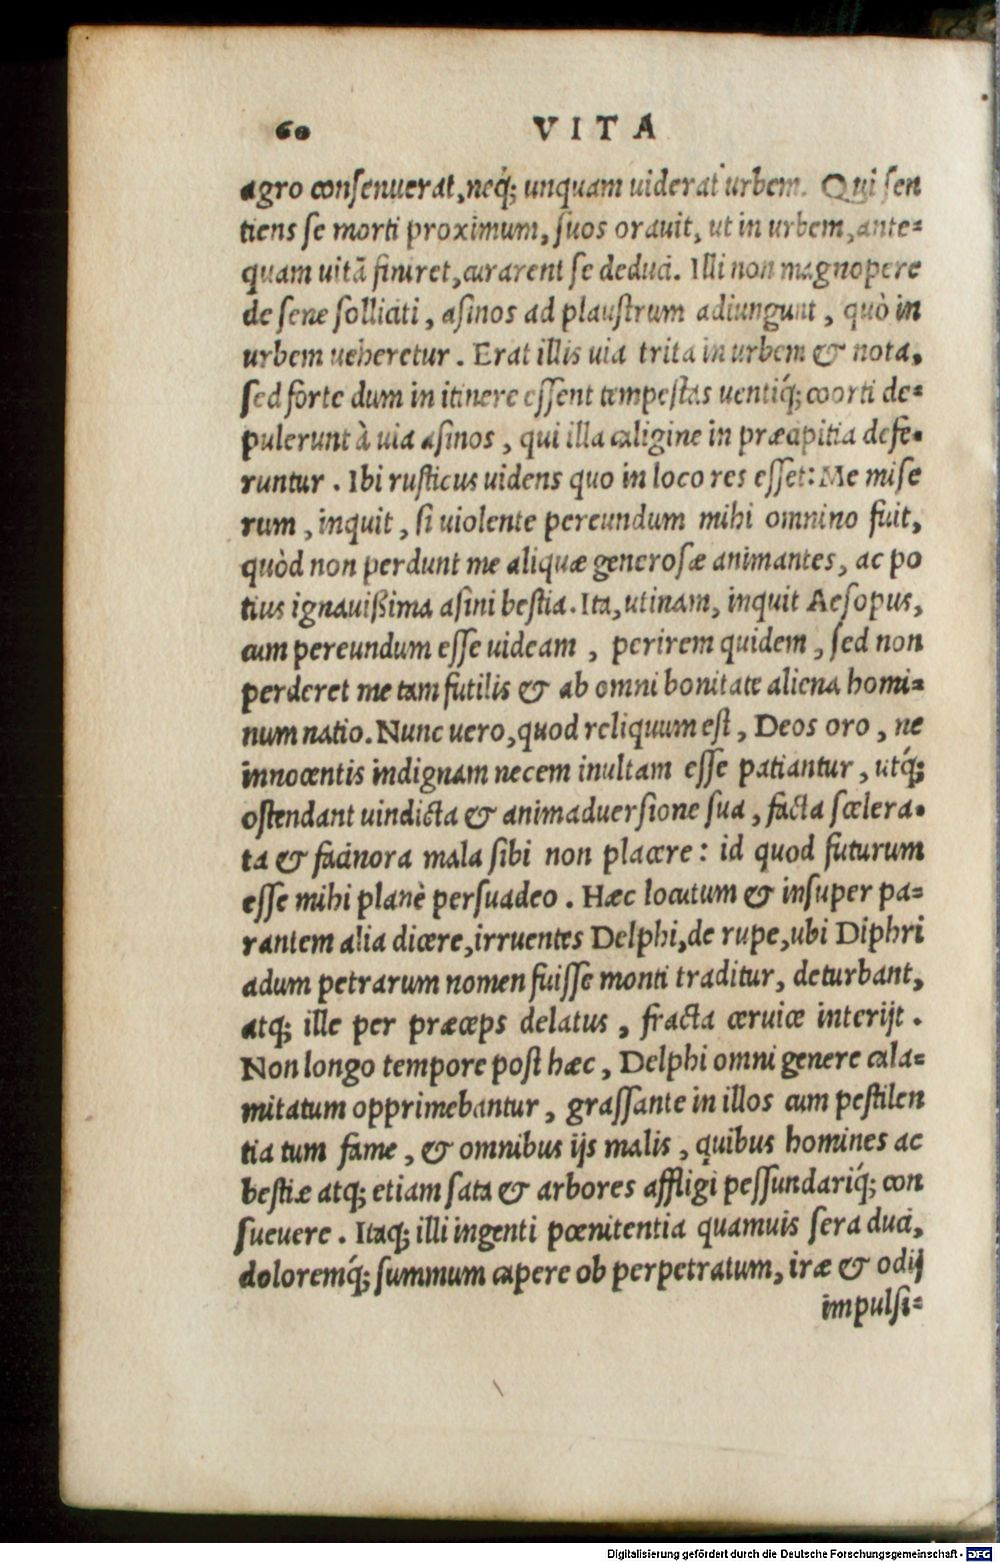 60 VITA
agro conſenuerat, neq́; unquam uiderat urbem. Qui ſen
tiens ſe morti proximum, ſuos orauit, ut in urbem, ante=
quam uitā finiret, curarent ſe deduci. Illi non magnopere
de ſene ſolliciti, aſinos ad plauſtrum adiungunt, quò in
urbem ueheretur. Erat illis uia trita in urbem & nota,
ſed forte dum in itinere eſſent tempeſtas uentiq́; coorti de=
pulerunt à uia aſinos, qui illa caligine in præcipitia defe=
runtur. Ibi ruſticus uidens quo in loco res eſſet: Me miſe
rum, inquit, ſi uiolente pereundum mihi omnino fuit,
quòd non perdunt me aliquæ generoſæ animantes, ac po
tius ignauißima aſini beſtia. Ita, utinam, inquit Aeſopus,
cum pereundum eſſe uideam, perirem quidem, ſed non
perderet me tam futilis & ab omni bonitate aliena homi=
num natio. Nunc uero, quod reliquum eſt, Deos oro, ne
innocentis indignam necem inultam eſſe patiantur, utq́;
oſtendant uindicta & animaduerſione ſua, facta ſcelera=
ta & facinora mala ſibi non placere: id quod futurum
eſſe mihi planè perſuadeo. Hæc locutum & inſuper pa=
rantem alia dicere, irruentes Delphi, de rupe, ubi Diphri
adum petrarum nomen fuiſſe monti traditur, deturbant,
atq; ille per præceps delatus, fracta ceruice interijt.
Non longo tempore poſt hæc, Delphi omni genere cala=
mitatum opprimebantur, graſſante in illos cum peſtilen
tia tum fame, & omnibus ijs malis, quibus homines ac
beſtiæ atq; etiam ſata & arbores affligi peſſundariq́; con
ſueuere. Itaq; illi ingenti pœnitentia quamuis ſera duci,
doloremq́; ſummum capere ob perpetratum, iræ & odij
impulſi=
Digitalisierung gefördert durch die Deutsche Forschungsgemeinschaft - DFG